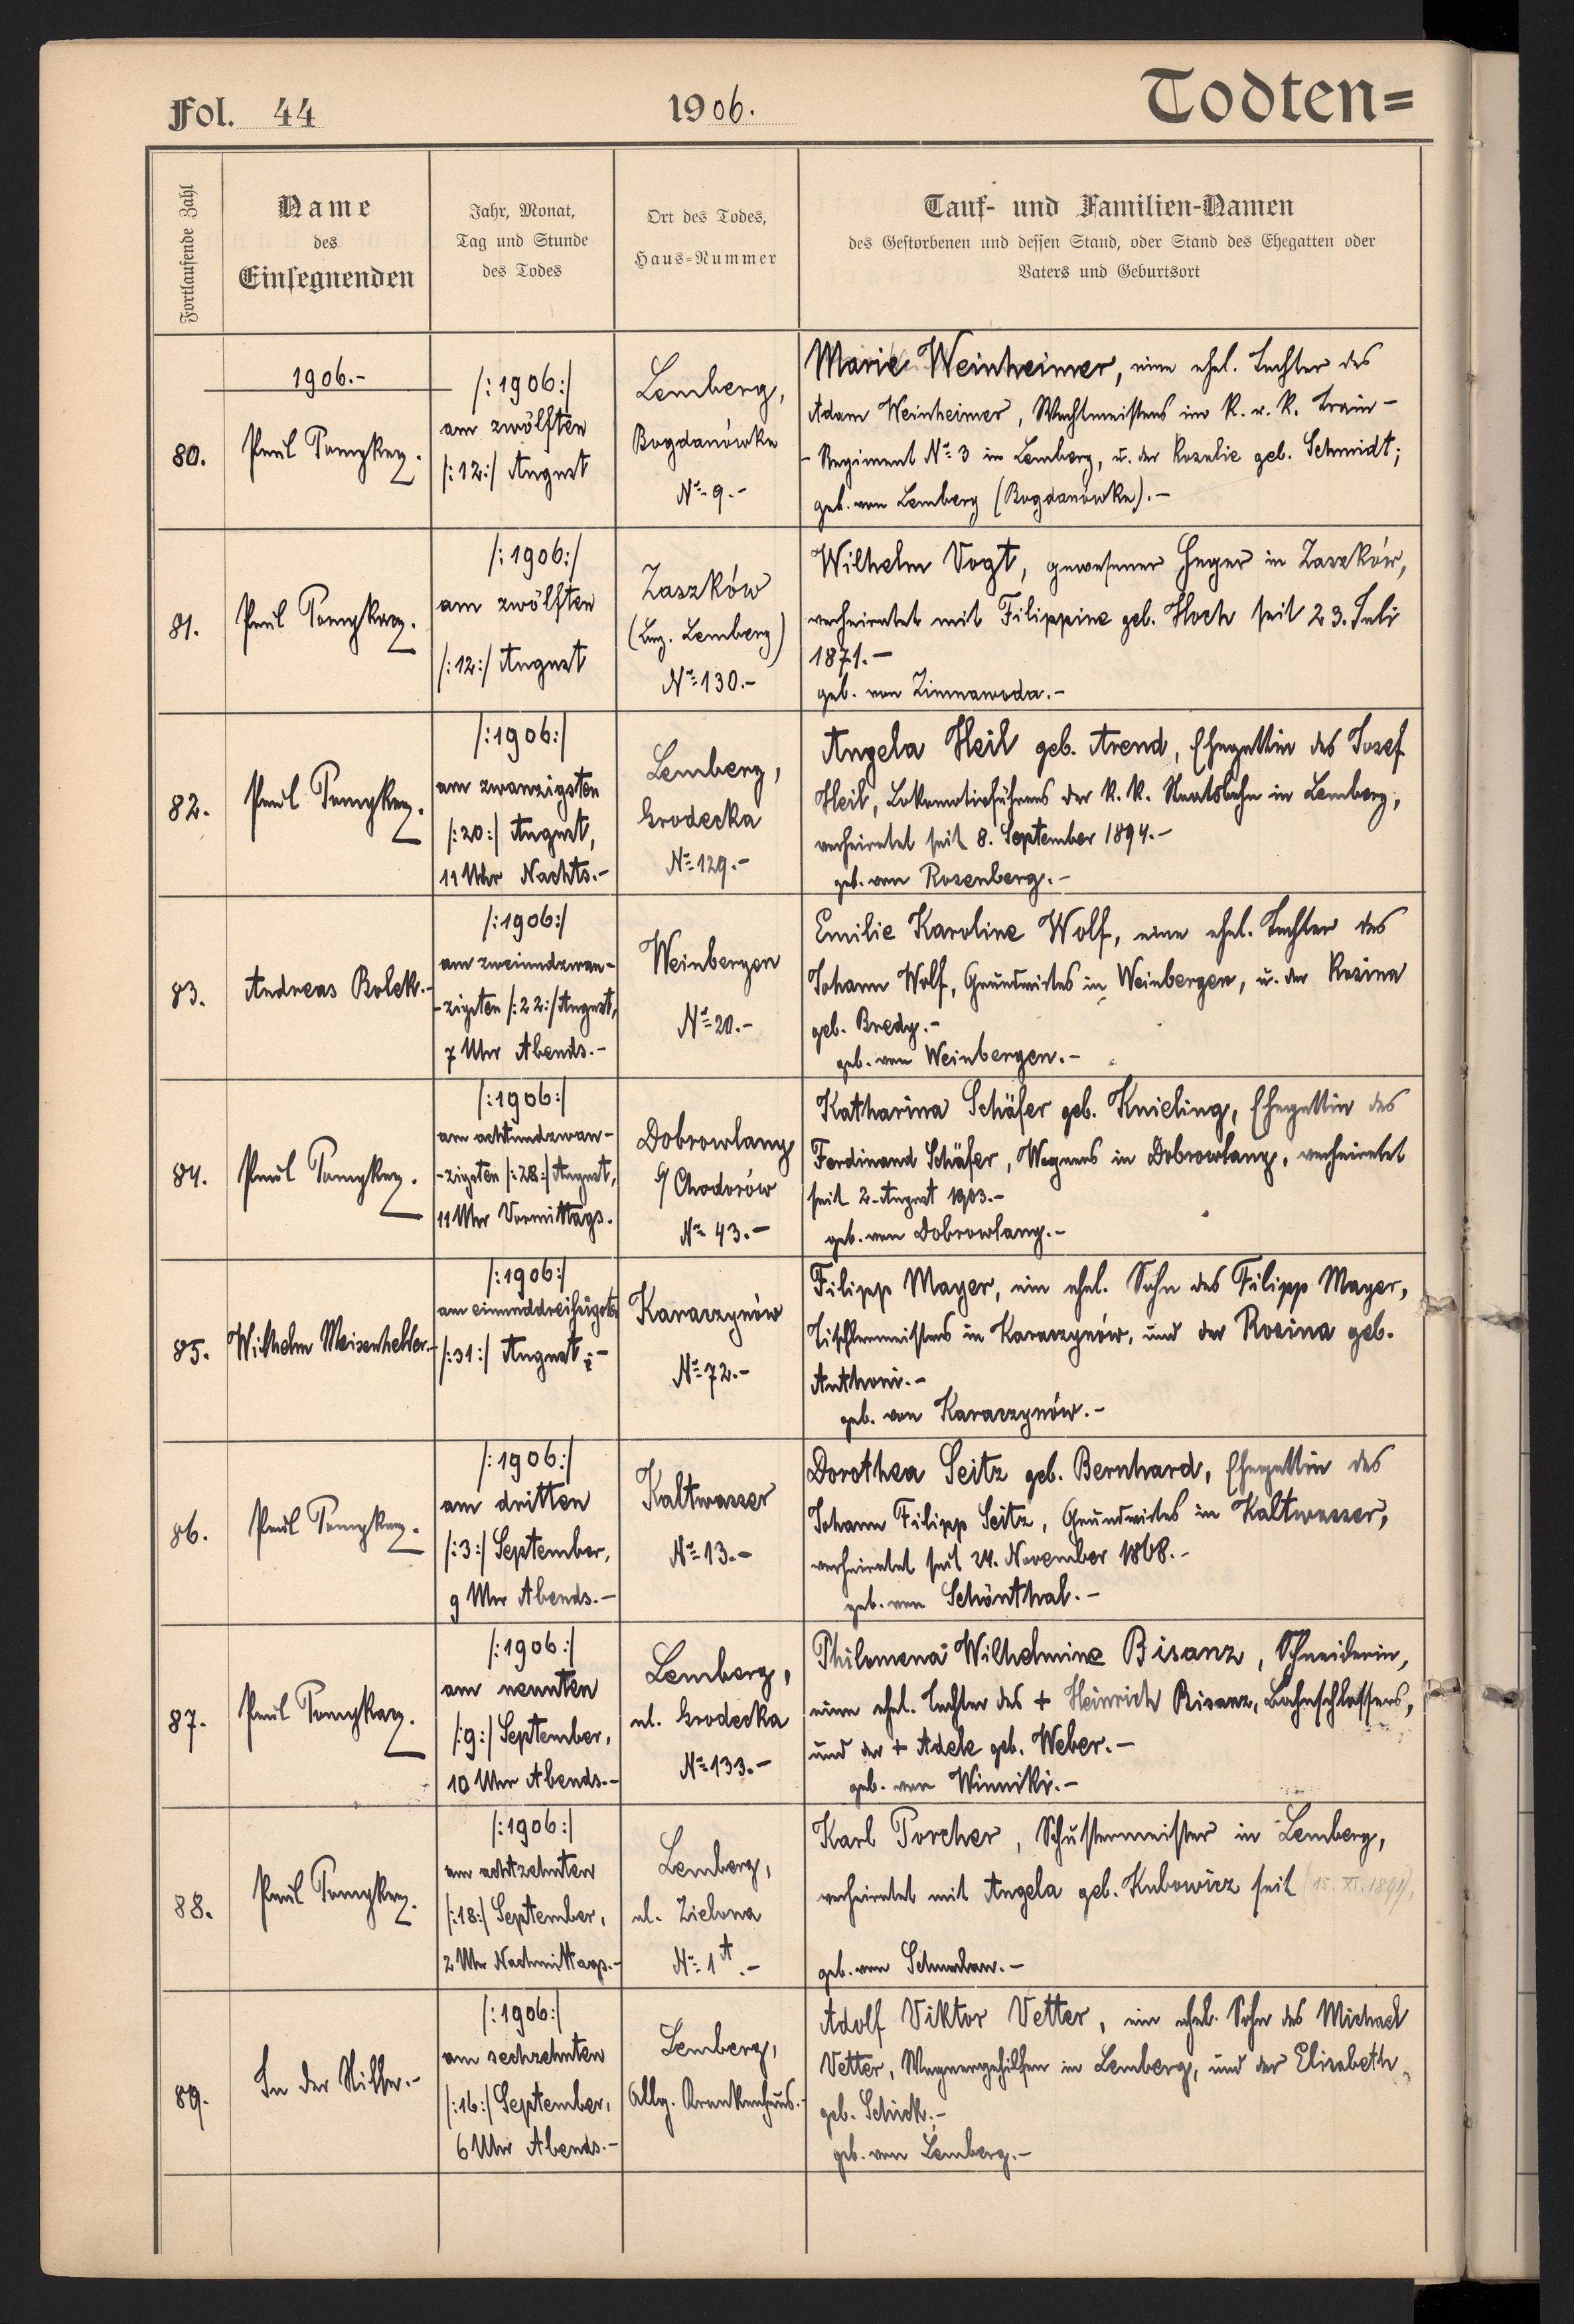 Fol. 44
1906.
Todten=
Fortlaufende Zahl
Name
des
Einsegnenden
Jahr, Monat,
Tag und Stunde
des Todes
Ort des Todes,
Haus-Nummer
Tauf- und Familien-Namen
des Gestorbenen und dessen Stand, oder Stand des Ehegatten oder
Vaters und Geburtsort
1906.-
80.
Paul
/:1906:/
am zwölften
/:12:/ August
Lemberg,
Bogdanówka
No 9.-
Marie Weinheimer, eine ehel. Tochter des
Adam Weinheimer, Wachtmeisters im k. u. k. Train-
-Regiment No 3 in Lemberg, u. der Rozalie geb. Schmidt;
geb. von Lemberg (Bogdanówka).-
81.
Paul
/:1906:/
am zwölften
/:12:/ August
Zaszków
Lemberg)
No 130.-
Wilhelm Vogt, gewesener Heger in Zaszków,
verheiratet mit Filippine geb. Hoch seit 23. Juli
1871.-
geb. von Zimnawoda.-
82.
Paul
/:1906:/
am zwanzigsten
/:20:/ August,
11 Uhr Nachts.-
Lemberg,
Grodecka
No 129.-
Angela Heil geb. Arend, Ehegattin des Josef
Heil, Lokomotivführers der k. k. Staatsbahn in Lemberg,
verheiratet seit 8. September 1894.-
geb. von Rosenberg.-
83.
Andreas Bolek.-
/:1906:/
am zweiundzwan-
-zigsten /:22:/ August,
7 Uhr Abends.-
Weinbergen
No 20.-
Emilie Karoline Wolf, eine ehel. Tochter des
Johann Wolf, Grundwirtes in Weinbergen, u. der Rosina
geb. Bredy.-
geb. von Weinbergen.-
84.
Paul
/:1906:/
am achtundzwan-
-zigsten /:28:/ August,
11 Uhr Vormittags.
Dobrowlany
Chodorów
No 43.-
Katharina Schäfer geb. Knieling, Ehegattin des
Ferdinand Schäfer, Wagners in Dobrowlany, verheiratet
seit 2. August 1903.-
geb. von Dobrowlany.-
85.
Wilhelm Meisenhelder.-
/:1906:/
am einunddreißigsten
/:31:/ August.-
Karaczynów
No 72.-
Filipp Mayer, ein ehel. Sohn des Filipp Mayer,
Tischlermeisters in Karaczynów, und der Rosina geb.
Anthoni.-
geb. von Karaczynów.-
86.
Paul
/:1906:/
am dritten
/:3:/ September,
9 Uhr Abends.-
Kaltwasser
No 13.-
Dorothea Seitz geb. Bernhard, Ehegattin des
Johann Filipp Seitz, Grundwirtes in Kaltwasser,
verheiratet seit 24. November 1868.-
geb. von Schönthal.-
87.
Paul
/:1906:/
am neunten
/:9:/ September,
10 Uhr Abends.-
Lemberg,
ul. Grodecka
No 133.-
Philomena Wilhelmine Bisanz, Schneiderin,
eine ehel. Tochter des + Heinrich Bisanz, Bahnschlossers,
und der + Adele geb. Weber.-
geb. von Winniki.-
88.
Paul
/:1906:/
am achtzehnten
/:18:/ September,
2 Uhr Nachmittags.-
Lemberg,
ul. Zielona
No 1A.-
Karl Porcher, Schustermeister in Lemberg,
verheiratet mit Angela geb. Kubowicz seit
geb. von
89.
In der Stille.-
/:1906:/
am sechzehnten
/:16:/ September,
6 Uhr Abends.-
Lemberg,
Allg. Krankenhaus.-
Adolf Viktor Vetter, ein ehel. Sohn des Michael
Vetter, Wagnergehilfen in Lemberg, und der Elisabeth
geb. Schick.-
geb. von Lemberg.-